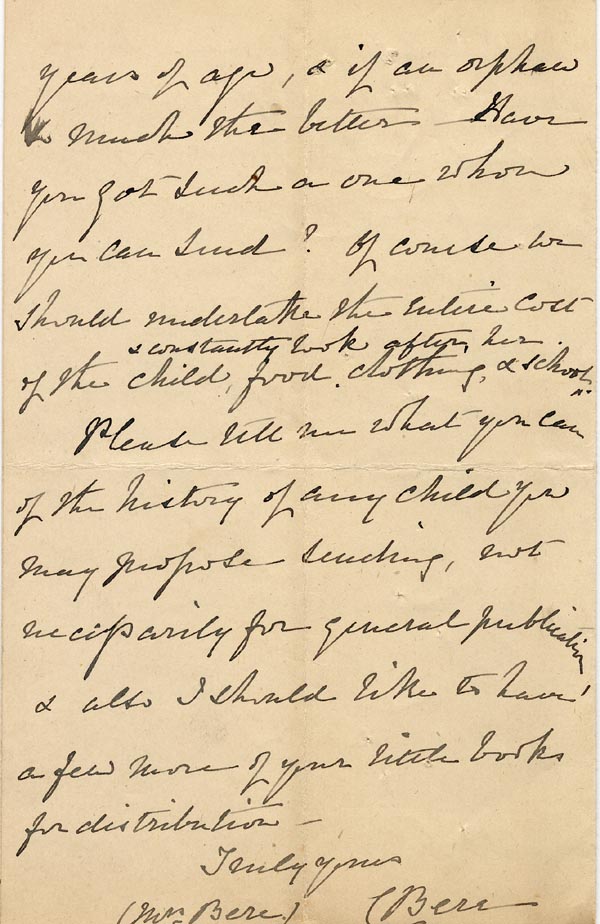 years of age, & if an orphan
so much the better - Have
you got such a one whom
you can send? Of course we
should undertake the entire cost
& constantly look after her.
of the child, food, clothing, & school
Please tell me what you can
of the history of any child you
may propose sending, not
necessarily for general publication
& also I should like to have
a few more of your little books
for distribution -
Truly yours
(Mrs Bere.) C Bere